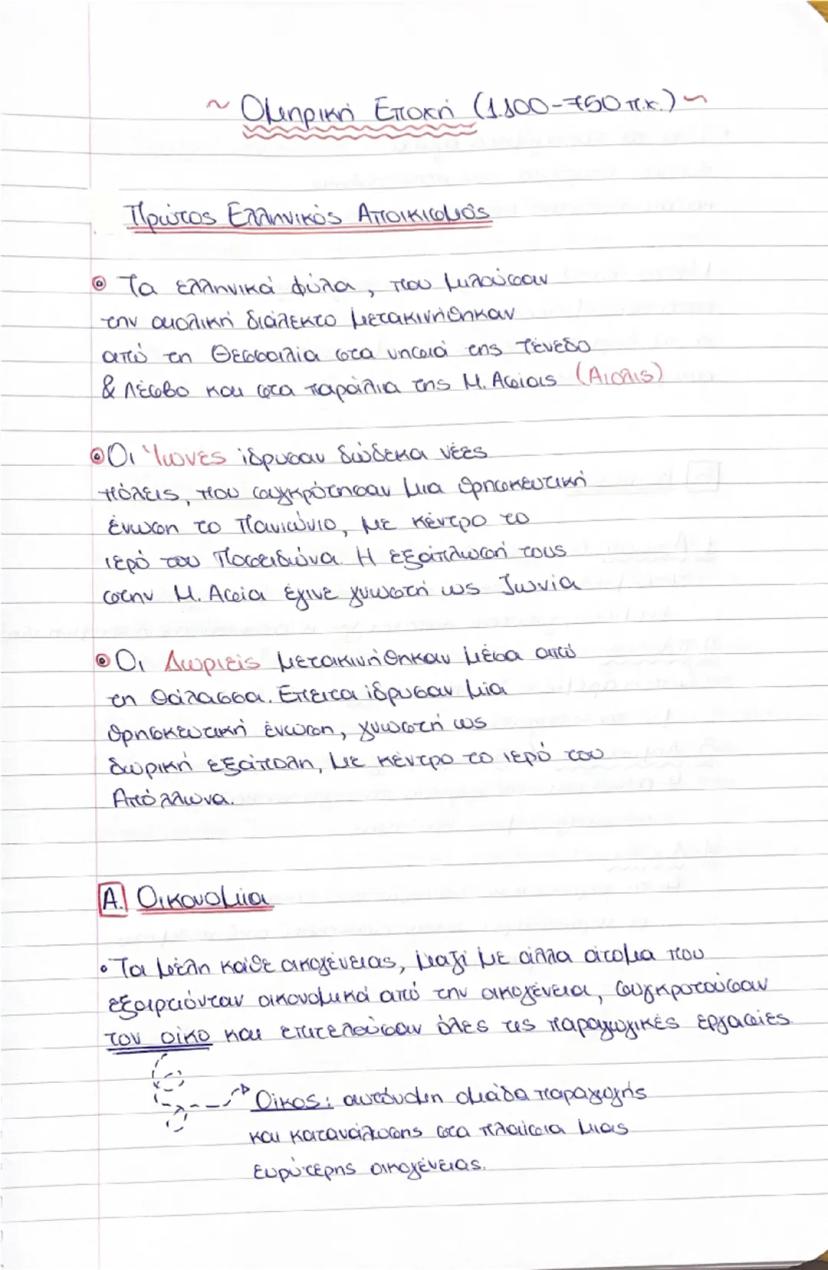 ~ Ομηρική Εποχή (1.100-750 π.κ.) ~
Πρώτος Ελληνικός Αποικισμός
Τα ελληνικά φύλα, που μιλούσαν
την αιολική διάλεκτο μετακινήθηκαν
από τη Θεσσαλία στα νησιά της Τένεδο
& Λέσβο και στα παράλια της Μ. Ασίας (Αιολίς)
Οι Ίωνες ίδρυσαν δώδεκα νέες
πόλεις, που συγκρότησαν μια θρησκευτική
ένωση το Πανιώνιο, με κέντρο το
ιερό του Ποσειδώνα. Η εξάπλωσή τους
στην Μ. Ασία έγινε γνωστή ως Ιωνία
Οι Δωριείς μετακινήθηκαν μέσα από
τη θάλασσα. Έπειτα ίδρυσαν μία
θρησκευτική ένωση, γνωστή ως
δωρική εξάπολη, με κέντρο το ιερό του
Απόλλωνα.
Α. Οικονομία
• Τα μέλη κάθε οικογένειας, μαζί με άλλα άτομα που
εξαρτιόνταν οικονομικά από την οικογένεια, συγκροτούσαν
τον οίκο και επιτελούσαν όλες τις παραγωγικές εργασίες
Οίκος: αυτόνομη ομάδα παραγωγής
και κατανάλωσης στα πλαίσια μιας
ευρύτερης οικογένειας.